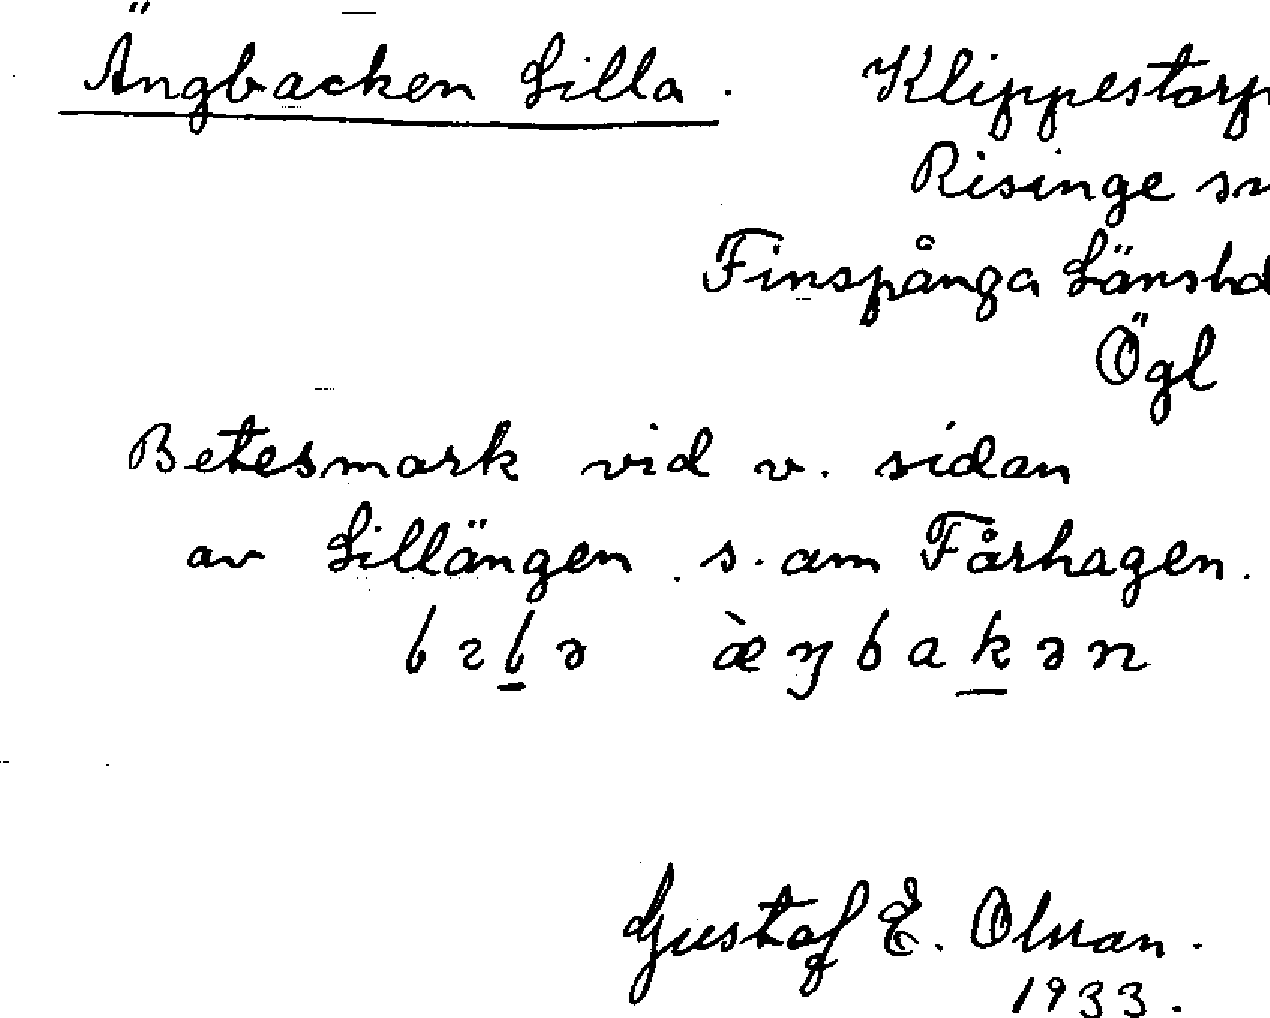 Ängbacken Lilla. Klippestorp
Risinge sn
Finspånga Länshd
Ögl
Betesmark vid v. sidan
av Lillängen s. om Fårhagen.
Gustaf E. Olman.
1933.